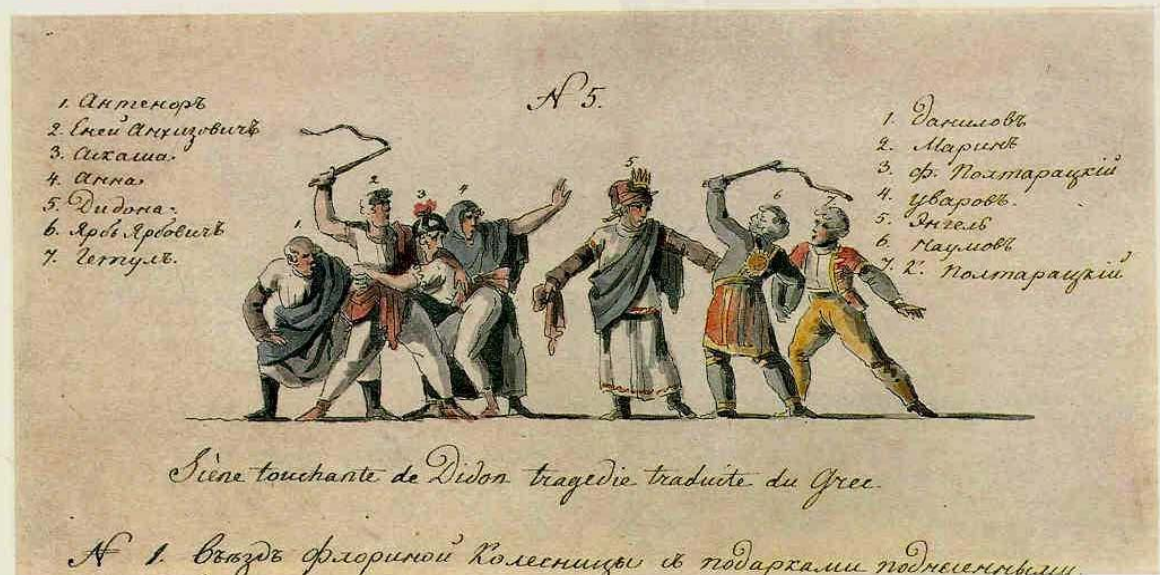 N 5.
1. Антеноръ
2. Еней Анхизовичъ
3. Аскаша.
4. Анна.
5. Дидона.
6. Ярбъ Ярбовичъ
7. Гетулъ.
1 2 3 4 5 6 7
1. Даниловъ
2. Маринъ
3. Ф. Полтарацкій
4. Уваровъ.
5. Энгель
6. Наумовъ
7. 2й Полтарацкій
Sçène touchante de Didon tragedie traduite du Grec
N 1. Въѣздъ Флориной Колесницы съ подарками поднесенными